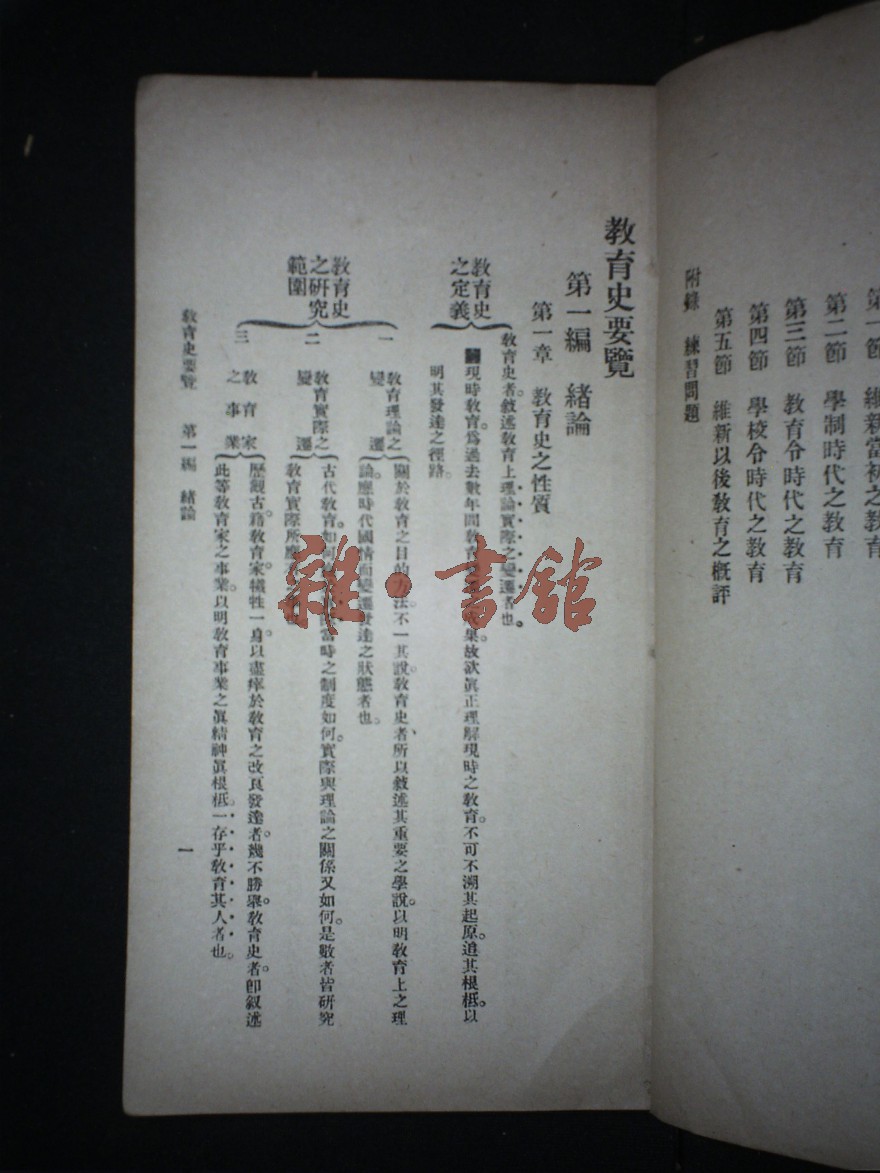 第一節 維新當初之教育
第二節 學制時代之教育
第三節 教育令時代之教育
第四節 學校令時代之教育
第五節 維新以後教育之概評
附錄 練習問題
教育史要覽
第一編 緒論
第一章 教育史之性質
教育史
之定義
教育史者。敘述教育上理論實際之變遷者也。
現時教育。爲過去數年間教育 果故欲眞正理解現時之教育。不可不溯其起原。追其根柢。以
明其發達之徑路。
教育史
之研究
範圍
一
教育理論之
變遷
關於教育之目的方法。不一其說。教育史者、所以敘述其重要之學說。以明教育上之理
論。應時代國情而變遷發達之狀態者也。
二
教育實際之
變遷
古代教育如何 當時之制度如何。實際與理論之關係又如何。是數者皆研究
教育實際所應 也
三
教育家
之事業
歷觀古籍教育家犧牲一身。以盡瘁於教育之改良發達者。幾不勝舉。教育史者。卽叙述
此等教育家之事業。以明教育事業之眞精神眞根柢。一存乎教育其人者也。
教育史要覽 第一編 緒論
一
雜·書館